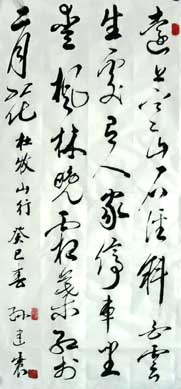 遠上寒山石徑斜白雲
生處有人家停車坐
愛楓林晚霜葉紅於
二月花 杜牧山行 癸巳春 孙建